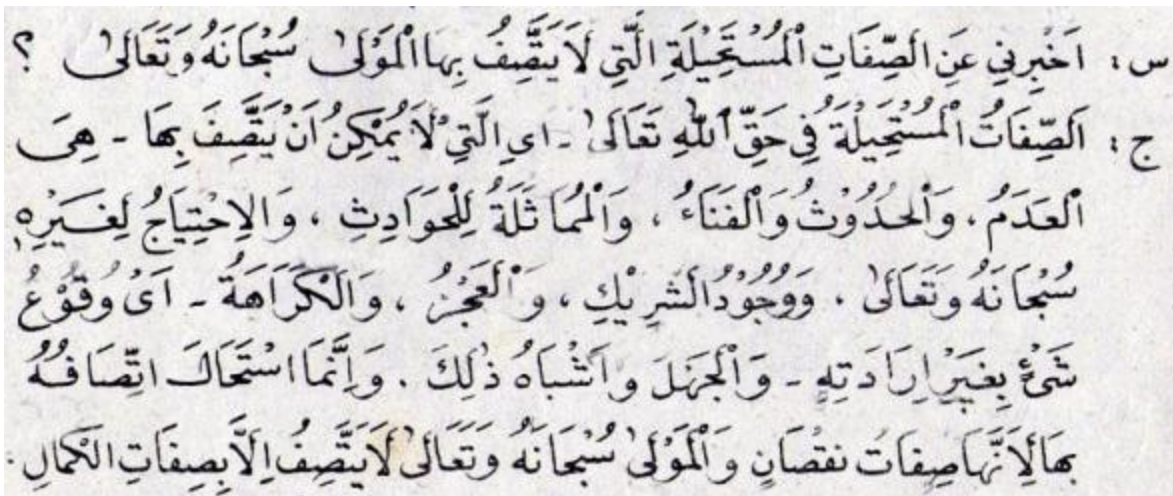 س : اَخْبِرْنِي عَنِ الصِّفَاتِ الْمُسْتَحِيْلَةِ الَّتِي لَا يَتَّصِفُ بِهَا الْمَوْلٰى سُبْحَانَهُ وَتَعَالٰى ؟
ج : اَلصِّفَاتُ الْمُسْتَحِيْلَةُ فِي حَقِّ اللهِ تَعَالٰى - اي الَّتِيْ لَا يُمْكِنُ اَنْ يَتَّصِفَ بِهَا - هِيَ
الْعَدَمُ . وَالْحُدُوْثُ وَالْفَنَاءُ ، وَالْمُمَاثَلَةُ لِلْحَوَادِثِ ، وَالِاحْتِيَاجُ لِغَيْرِهِ
سُبْحَانَهُ وَتَعَالٰى . وَوُجُوْدُ الشَّرِيْكِ ، وَالْعَجْزُ ، وَالْكَرَاهَةُ - اَيْ وُقُوْعُ
شَيْءٍ بِغَيْرِ اِرَادَتِهِ - وَالْجَهْلَ وَاَشْبَاهُ ذٰلِكَ . وَاِنَّمَا اسْتَحَالَ اتِّصَافُهُ
بِهَا لِاَنَّهَا صِفَاتُ نُقْصَانٍ وَالْمَوْلٰى سُبْحَانَهُ وَتَعَالٰى لَا يَتَّصِفُ اِلَّا بِصِفَاتِ الْكَمَالِ .